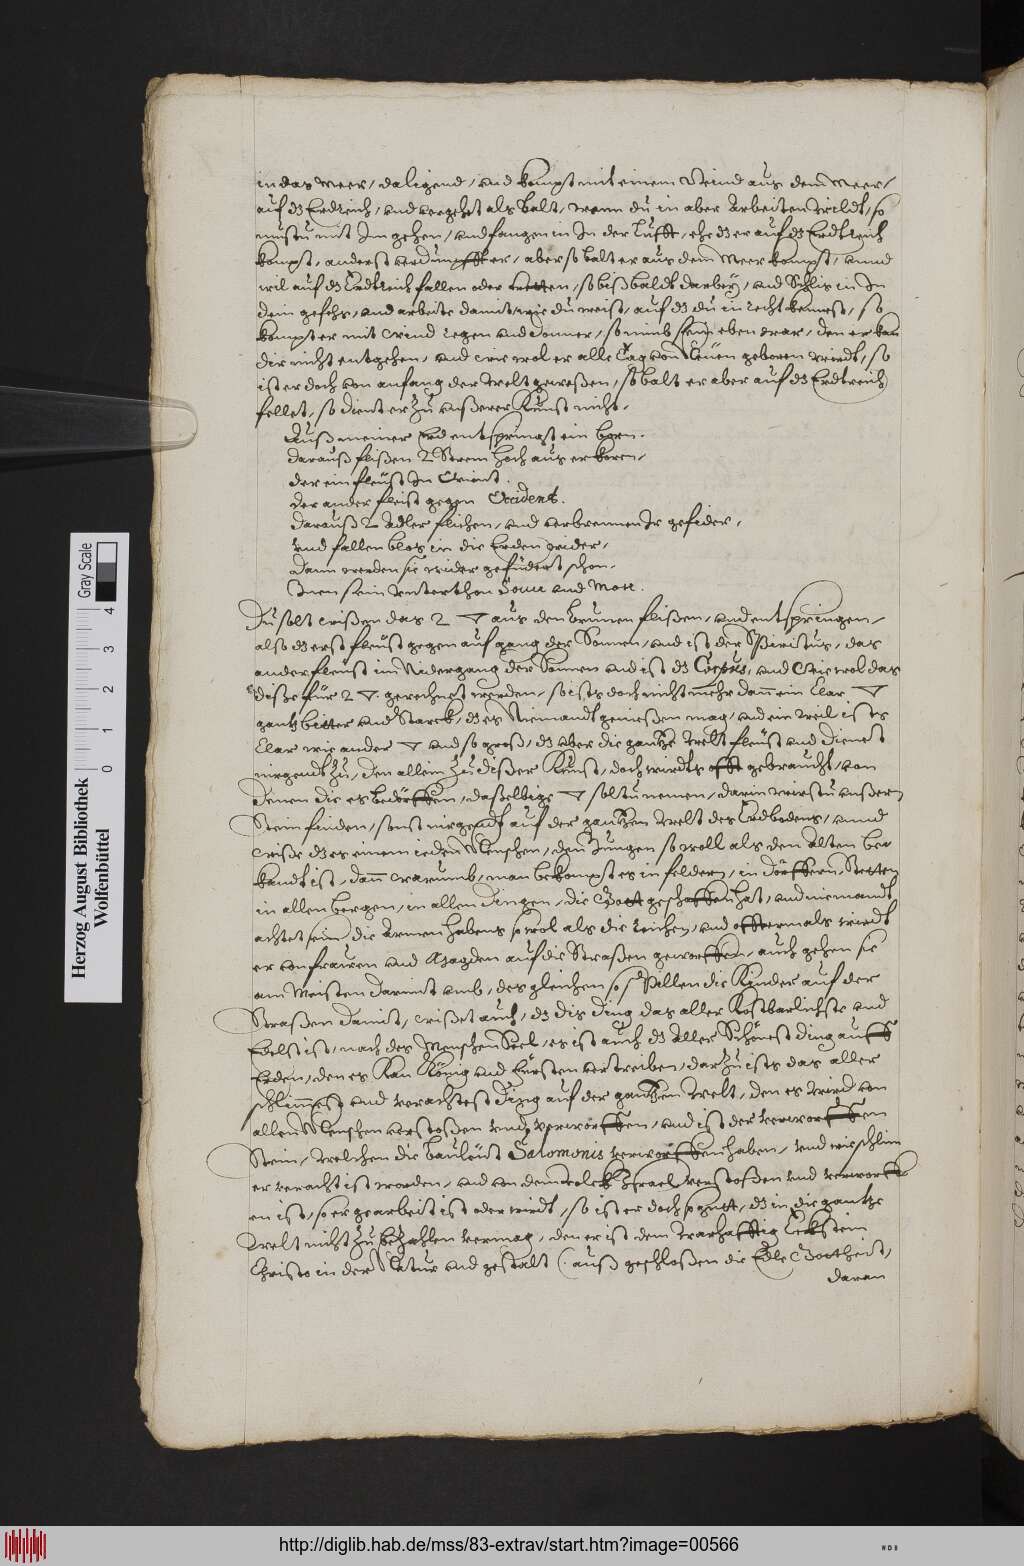 in das Meer, da ligend, vnd kompst mit einem Wind aus dem Meer,
auf dz Erdreich, vnd vergehet als balt, wann du in aber Arbeiten wildt, so
mustu mit Im gehen, vnd fangen in In der Lufft, ehe dz er auf dz Erdtreich
kompt, anderst verdumpfft er, aber so balt er aus dem Meer kompt, vnnd
wil auf dz Erdtreich fallen oder tretten, so biß baldt darbeÿ, vnd Schlis in In
dein gefehs, vnd arbeite damit, wie du weist, auf dz du in recht kennest, so
kompt er mit Wind regen vnd donner, so nimb sein eben war, den er kan
dir nicht entgehen, vnd wie wol er alle Tag von Neüen geboren wirdt, so
ist er doch von anfang der Welt geweßen, so balt er aber auf dz Erdtreich
fellet, so dient er zu vnßerer Kunst nicht,
Auß meiner Erd entspringt ein born.
darauß flißen 2 Strem hoch aus erkoren,
der ein fleüst In Orient.
der ander fleist gegen Occident.
darauß 2 Adler flihen, vnd verbrennen Ir gefider,
vnd fallen blos in die Erden wider,
dann werden sie wider gefüdert schon.
Inen sein vnterthon Sonn vnd Mon.
Du solt wißen das 2 ▽ aus den brunen flißen, vnd entspringen,
also dz erst fleüst gegen auf gang der Sonnen, vnd ist der Spiritus, das
ander fleüst im Nidergang der Sonnen vnd ist dz Corpus, vnd Wie wol das
diße für 2 ▽. gerechnet werden, so ists doch nicht mehr dann ein Clar ▽
gantz bitter vnd Starck, dz es Niemandt genießen mag, vnd ein weil ist es
Clar wie ander ▽ vnd so groß, dz vber die gantze Welt fleüst vnd dienet
nirgendt zu, den allein zu dißer Kunst, doch wirdts offt gebraucht, von
denen die es bedörffen, daßelbige ▽ soltu nemen, darin wirstu vnßern
Stein finden, sonst nirgendt auf der gantzen Welt des Erdbodens, vnnd
wiße dz es einem ieden Menschen, den Jungen so woll als den Alten be
kandt ist, dan warumb, man bekompt es in feldern, in Dörffern, Stetten
in allen bergen, in allen dingen, die Gott geschaffen hat, vnd niemandt
achtet sein, die Armen habens so wol als die reichen, vnd offtermals wirdt
er von frauen vnd Magden auf die Straßen geworffen, auch gehen sie
am Meisten darmit vmb, des gleichen so spillen die Kinder auf der
Straßen damit, wißet auch, dz dis ding das aller Kostbarlichste vnd
Edelst ist, nach des Menschen Seel, es ist auch dz Aller Schönest ding auff
Erden, den es Kan König vnd Fürsten vertreiben, dar zu ists das aller
schlimmest vnd verachtest Ding auf der gantzen Welt, den es wird von
allen Menschen verstoßen vnd verworffen, vnd ist der verworffen
Stein, welchen die bauleüt Salomonis verworffen haben, vnd wie schlim
er veracht ist worden, vnd von dem volck Israel verstoßen vnd verworff
en ist, so er gearbeit ist oder wirdt, so ist er doch so gutt, dz in die gantze
Welt nicht zu bezahlen vermag, den er ist dem Warhafftig Eckstein
Christo in der Natur vnd gestalt (: auß geschloßen die Edle Gottheit,
daran
Herzog August Bibliothek
Wolfenbüttel
0 1 2 3 4
Gray Scale
http://diglib.hab.de/mss/83-extrav/start.htm?image=00566